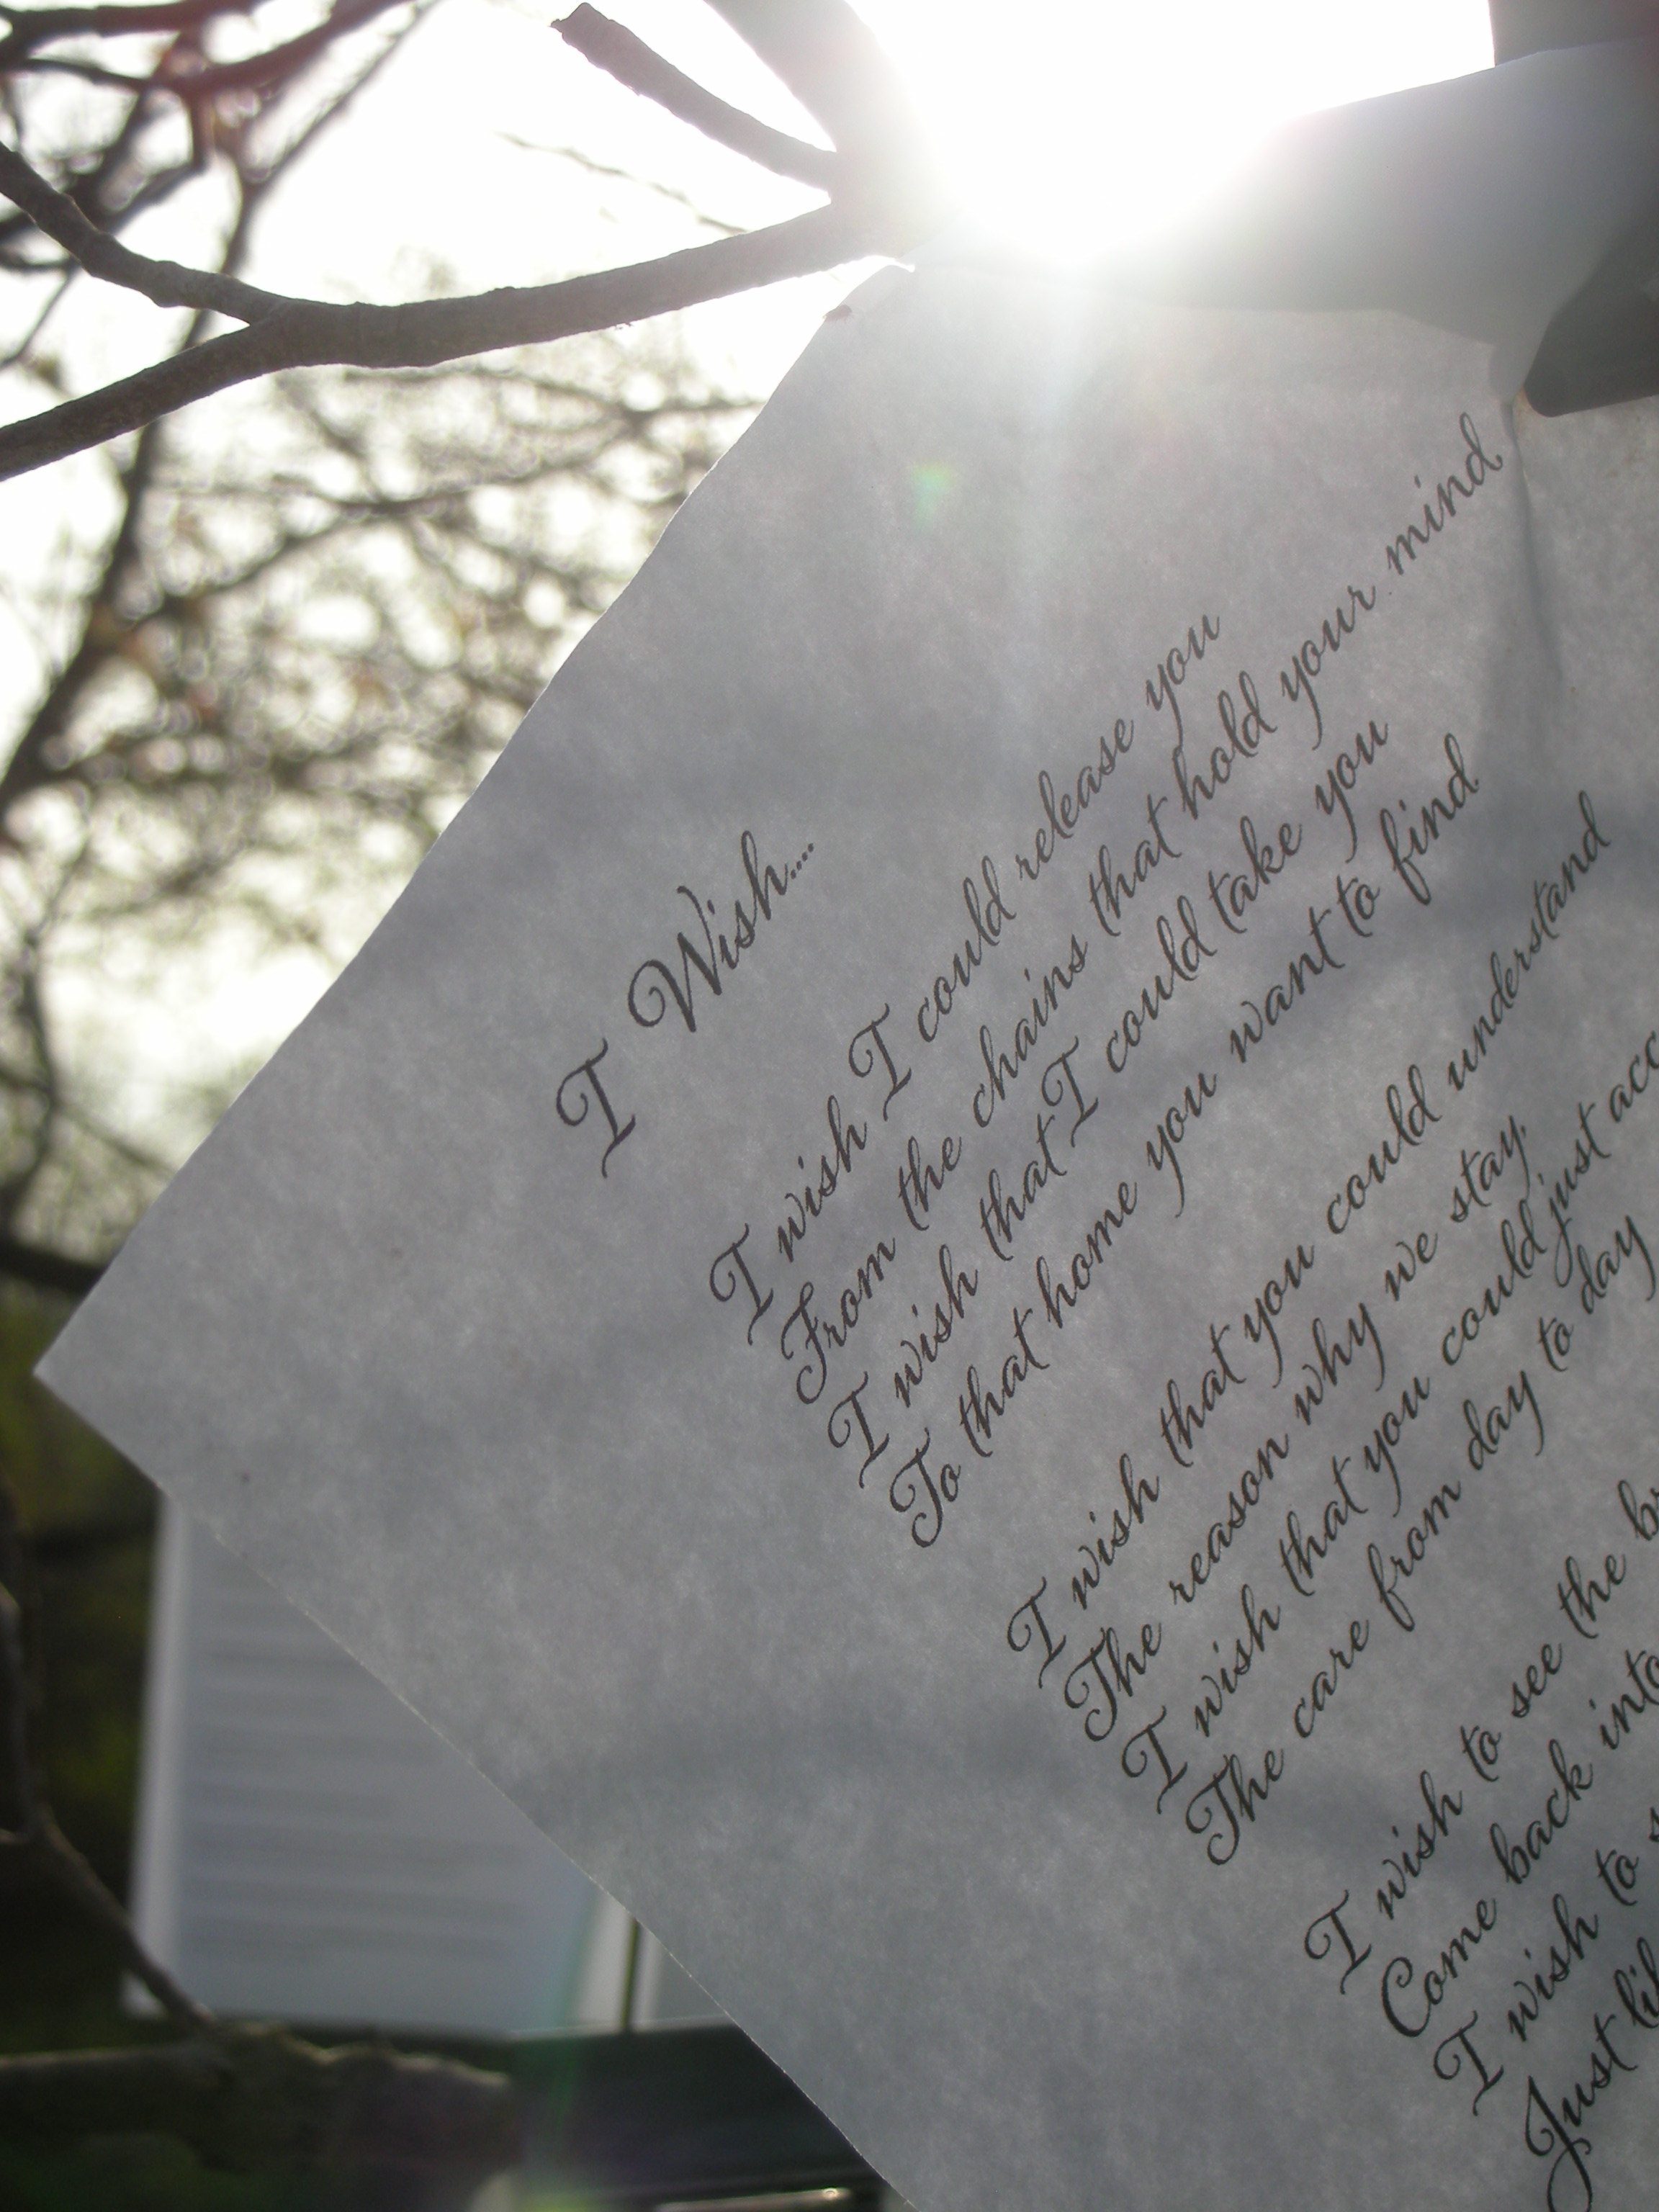 I Wish....
I wish I could release you
From the chains that hold your mind
I wish that I could take you
To that home you want to find
I wish that you could understand
The reason why we stay.
I wish that you could just
The care from day to day
I wish to see the
Come back into
I wish to
Just